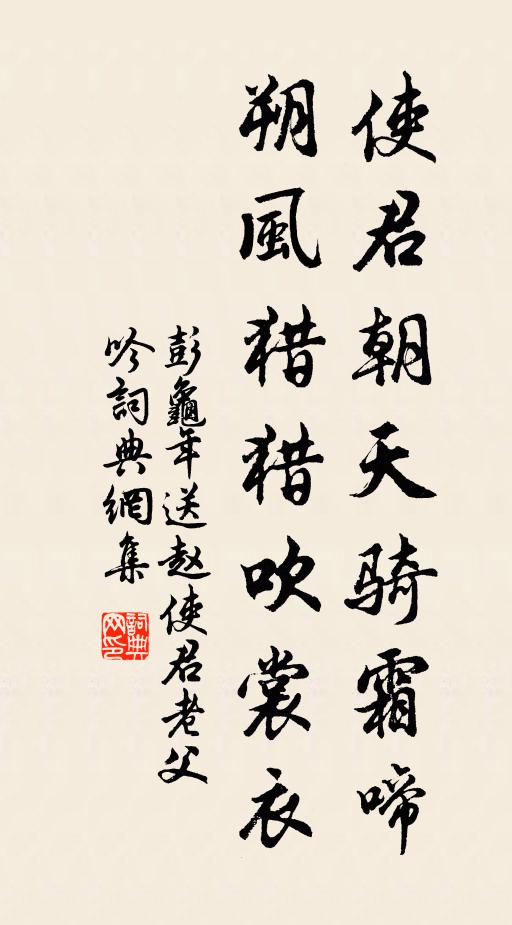 使君朝天骑霜啼
朔風猎猎吹裳衣
彭龜年送赵使君老父
吟詞典網集
詞典
网印